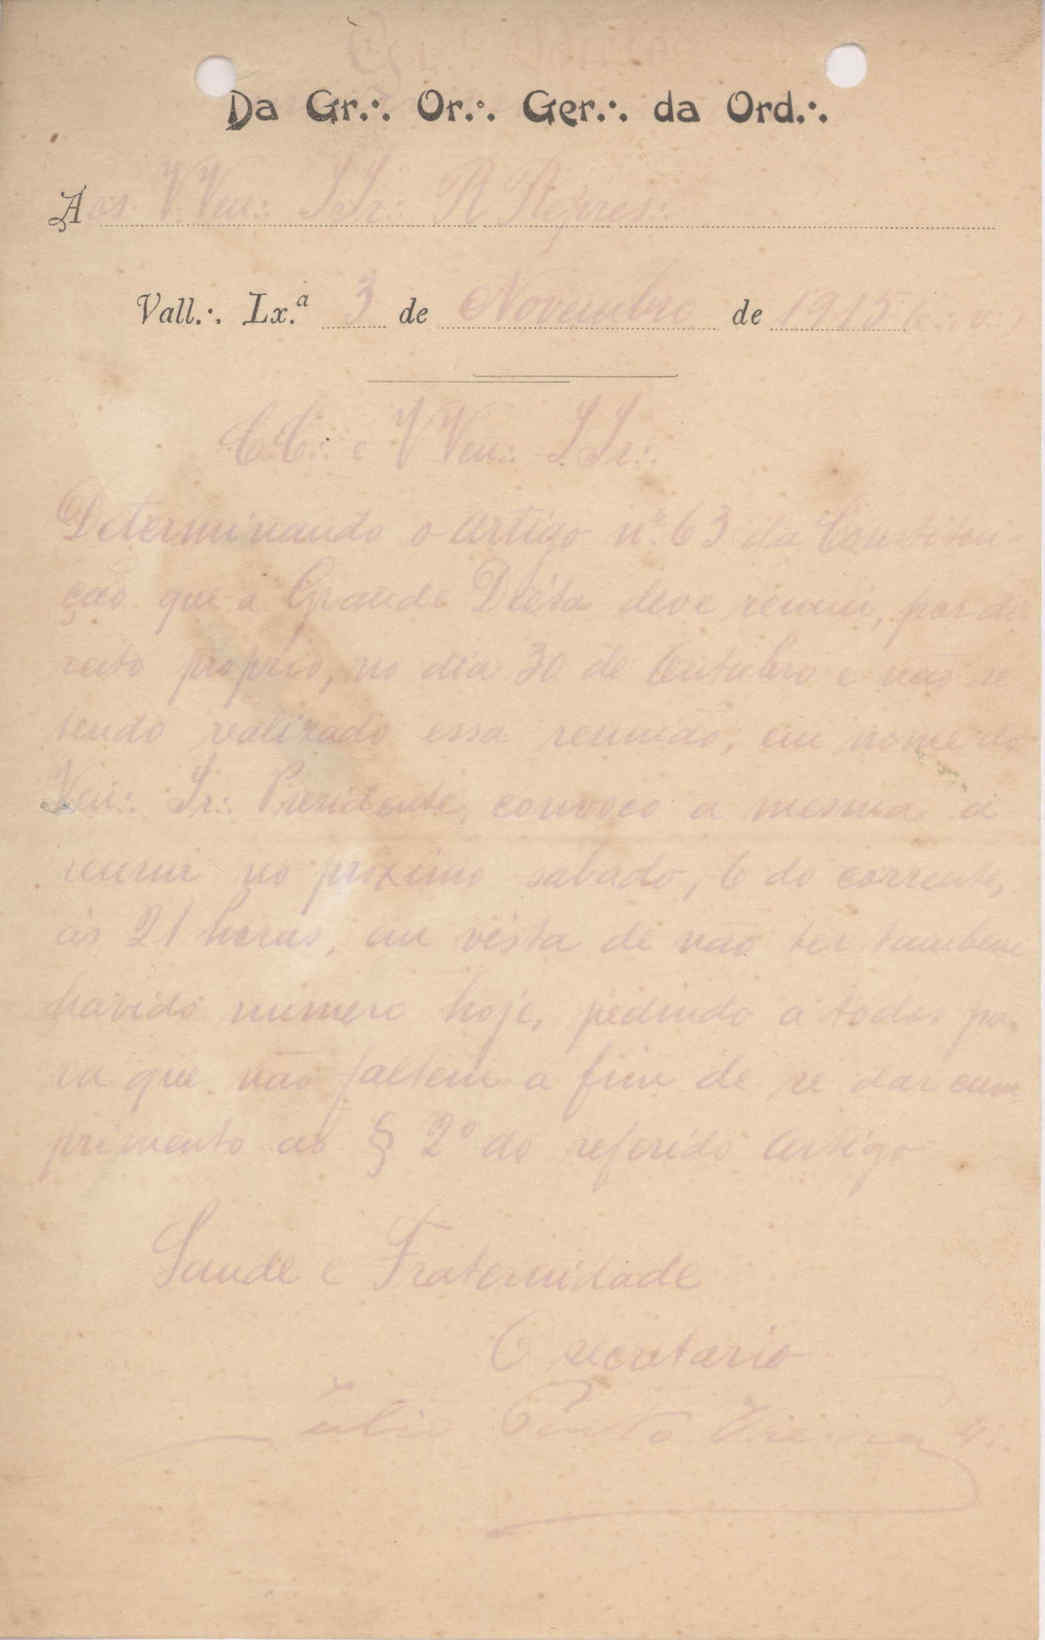 Da Gr.∴ Or.∴ Ger.∴ da Ord.∴
Aos VVen∴ IIr∴ R Repres∴
Vall.∴ Lx.ª 3 de Novembro de 1915 (e∴ v∴)
CC∴ e VVen∴ IIr∴
Determinando o artigo nº 63 da Constitui-
ção que a Grande Diéta deve reunir, por di-
reito proprio, no dia 30 de Outubro e não se
tendo realizado essa reunião, em nome do
Ven∴ Ir∴ Presidente, convoco a mesma a
reunir no proximo sabado, 6 do corrente,
ás 21 horas, em vista de não ter tambem
havido numero hoje, pedindo a todos pa-
ra que não faltem a fim de se dar cum
primento ao § 2º do referido artigo
Saude e Fraternidade
O secretario
Julio Pinto Vieira